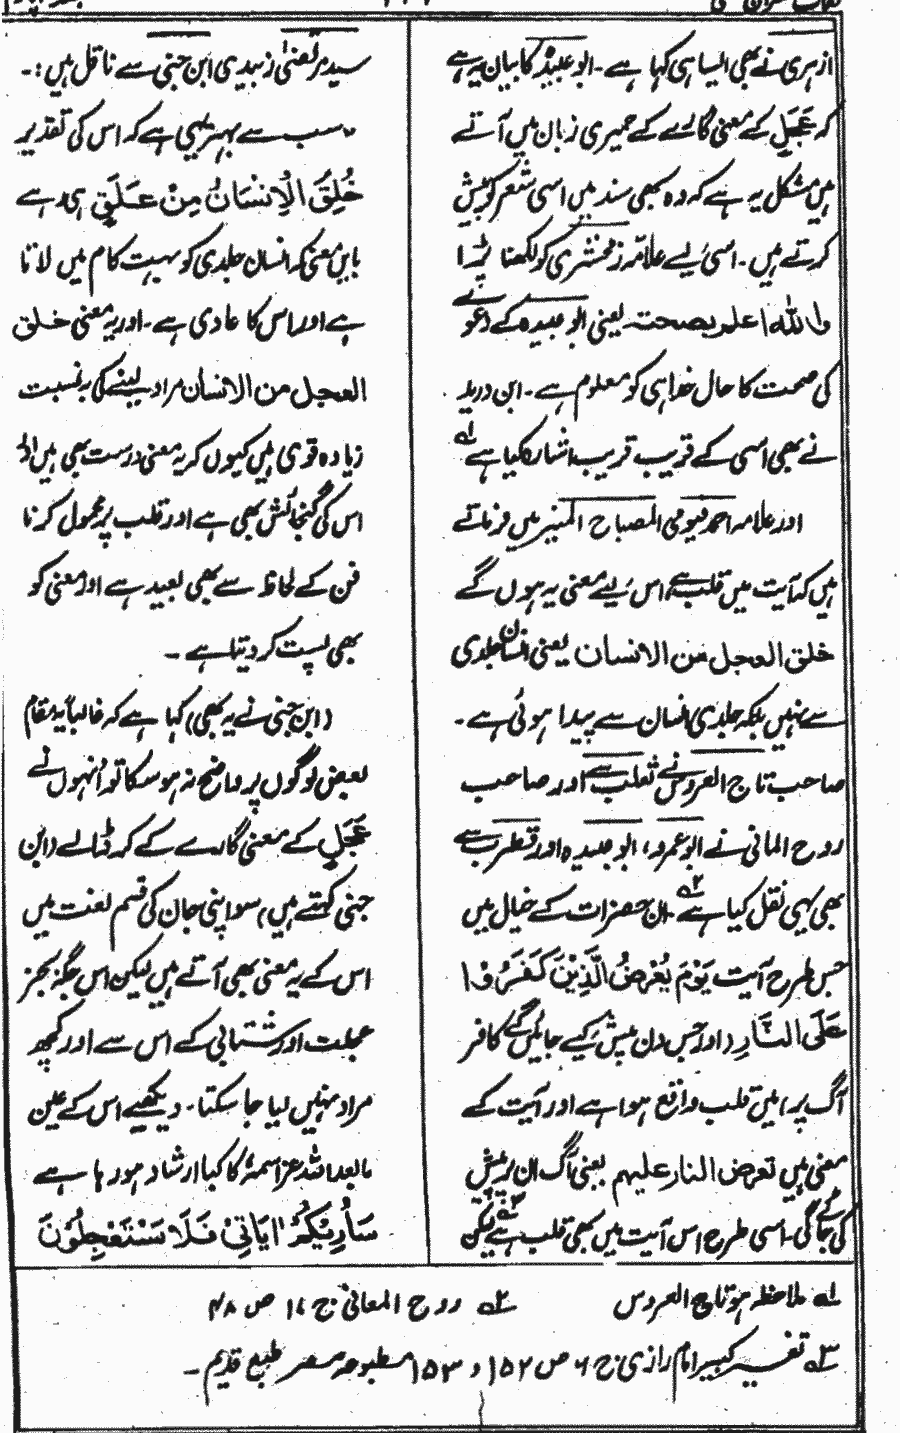 ازہری نے بھی ایسا ہی کہا ہے۔ ابو عبیدؒ کا بیان یہ ہے
کہ عَجَل کے معنی گارے کے حمیری زبان میں آتے
ہیں مشکل یہ ہے کہ وہ کبھی سند میں اسی شعر کو پیش
کرتے ہیں۔ اسی لیے علامہ زمخشری کو لکھنا پڑا
واللہ اعلم بصحتہ یعنی ابو عبیدہ کے دعوے
کی صحت کا حال خدا ہی کو معلوم ہے۔ ابن درید
نے بھی اسی کے قریب قریب اشارہ کیا ہے ۱ے
اور علامہ احمد فیومی المصباح المنیر میں فرماتے
ہیں کہ آیت میں قلب ہے، اس لیے معنی یہ ہوں گے
خلق العجل من الانسان یعنی انسان جلدی
سے نہیں بلکہ جلدی انسان سے پیدا ہوئی ہے۔
صاحب تاج العروس نے ثعلب سے اور صاحب
روح المانی نے ابو عمرو، ابو عبیدہ اور قطرب سے
بھی یہی نقل کیا ہے ۲ے ان حضرات کے خیال میں
جس طرح آیت یَوْمَ یُعْرَضُ الَّذِیْنَ کَفَرُوْا
عَلَی النَّارِ (اور جس دن پیش کیے جائیں گے کافر
آگ پر) میں قلب واقع ہوا ہے اور آیت کے
معنی ہیں تعرض النار علیہم یعنی آگ ان پر پیش
کی جائے گی۔ اسی طرح اس آیت میں بھی قلب ہے ۳ے لیکن
سید مرتضیٰ زبیدی ابن جنی سے ناقل ہیں:۔
سب سے بہتر یہی ہے کہ اس کی تقدیر
خُلِقَ الْاِنْسَانُ مِنْ عَجَلٍ ہی رہے
بایں معنی کہ انسان جلدی کو بہت کام میں لاتا
ہے اور اس کا عادی ہے۔ اور یہ معنی خلق
العجل من الانسان مراد لینے کی بہ نسبت
زیادہ قوی ہیں کیوں کہ یہ معنی درست بھی ہیں اور
اس کی گنجائش بھی ہے اور قلب پر محمول کرنا
فن کے لحاظ سے بھی بعید ہے اور معنی کو
بھی پست کر دیتا ہے۔
(ابن جنی نے یہ بھی) کہا ہے کہ غالباً یہ مقام
بعض لوگوں پر واضح نہ ہو سکا تو انہوں نے
عَجَلٍ کے معنی گارے کے کر ڈالے (ابن
جنی کہتے ہیں) سو اپنی جان کی قسم لغت میں
اس کے یہ معنی بھی آتے ہیں لیکن اس جگہ بجز
عجلت اور شتابی کے اس سے اور کچھ
مراد نہیں لیا جا سکتا۔ دیکھیے اس کے عین
مابعد اللہ عز اسمہٗ کا کیا ارشاد ہو رہا ہے
سَاُرِیْکُمْ اٰیَاتِیْ فَلَا تَسْتَعْجِلُوْنَ
۱ے ملاحظہ ہو تاج العروس ۲ے روح المعانی ج ۱۷ ص ۴۸
۳ے تفسیر کبیر امام رازی ج ۶ ص ۱۵۲ و ۱۵۳ مطبوعہ مصر طبع قدیم۔